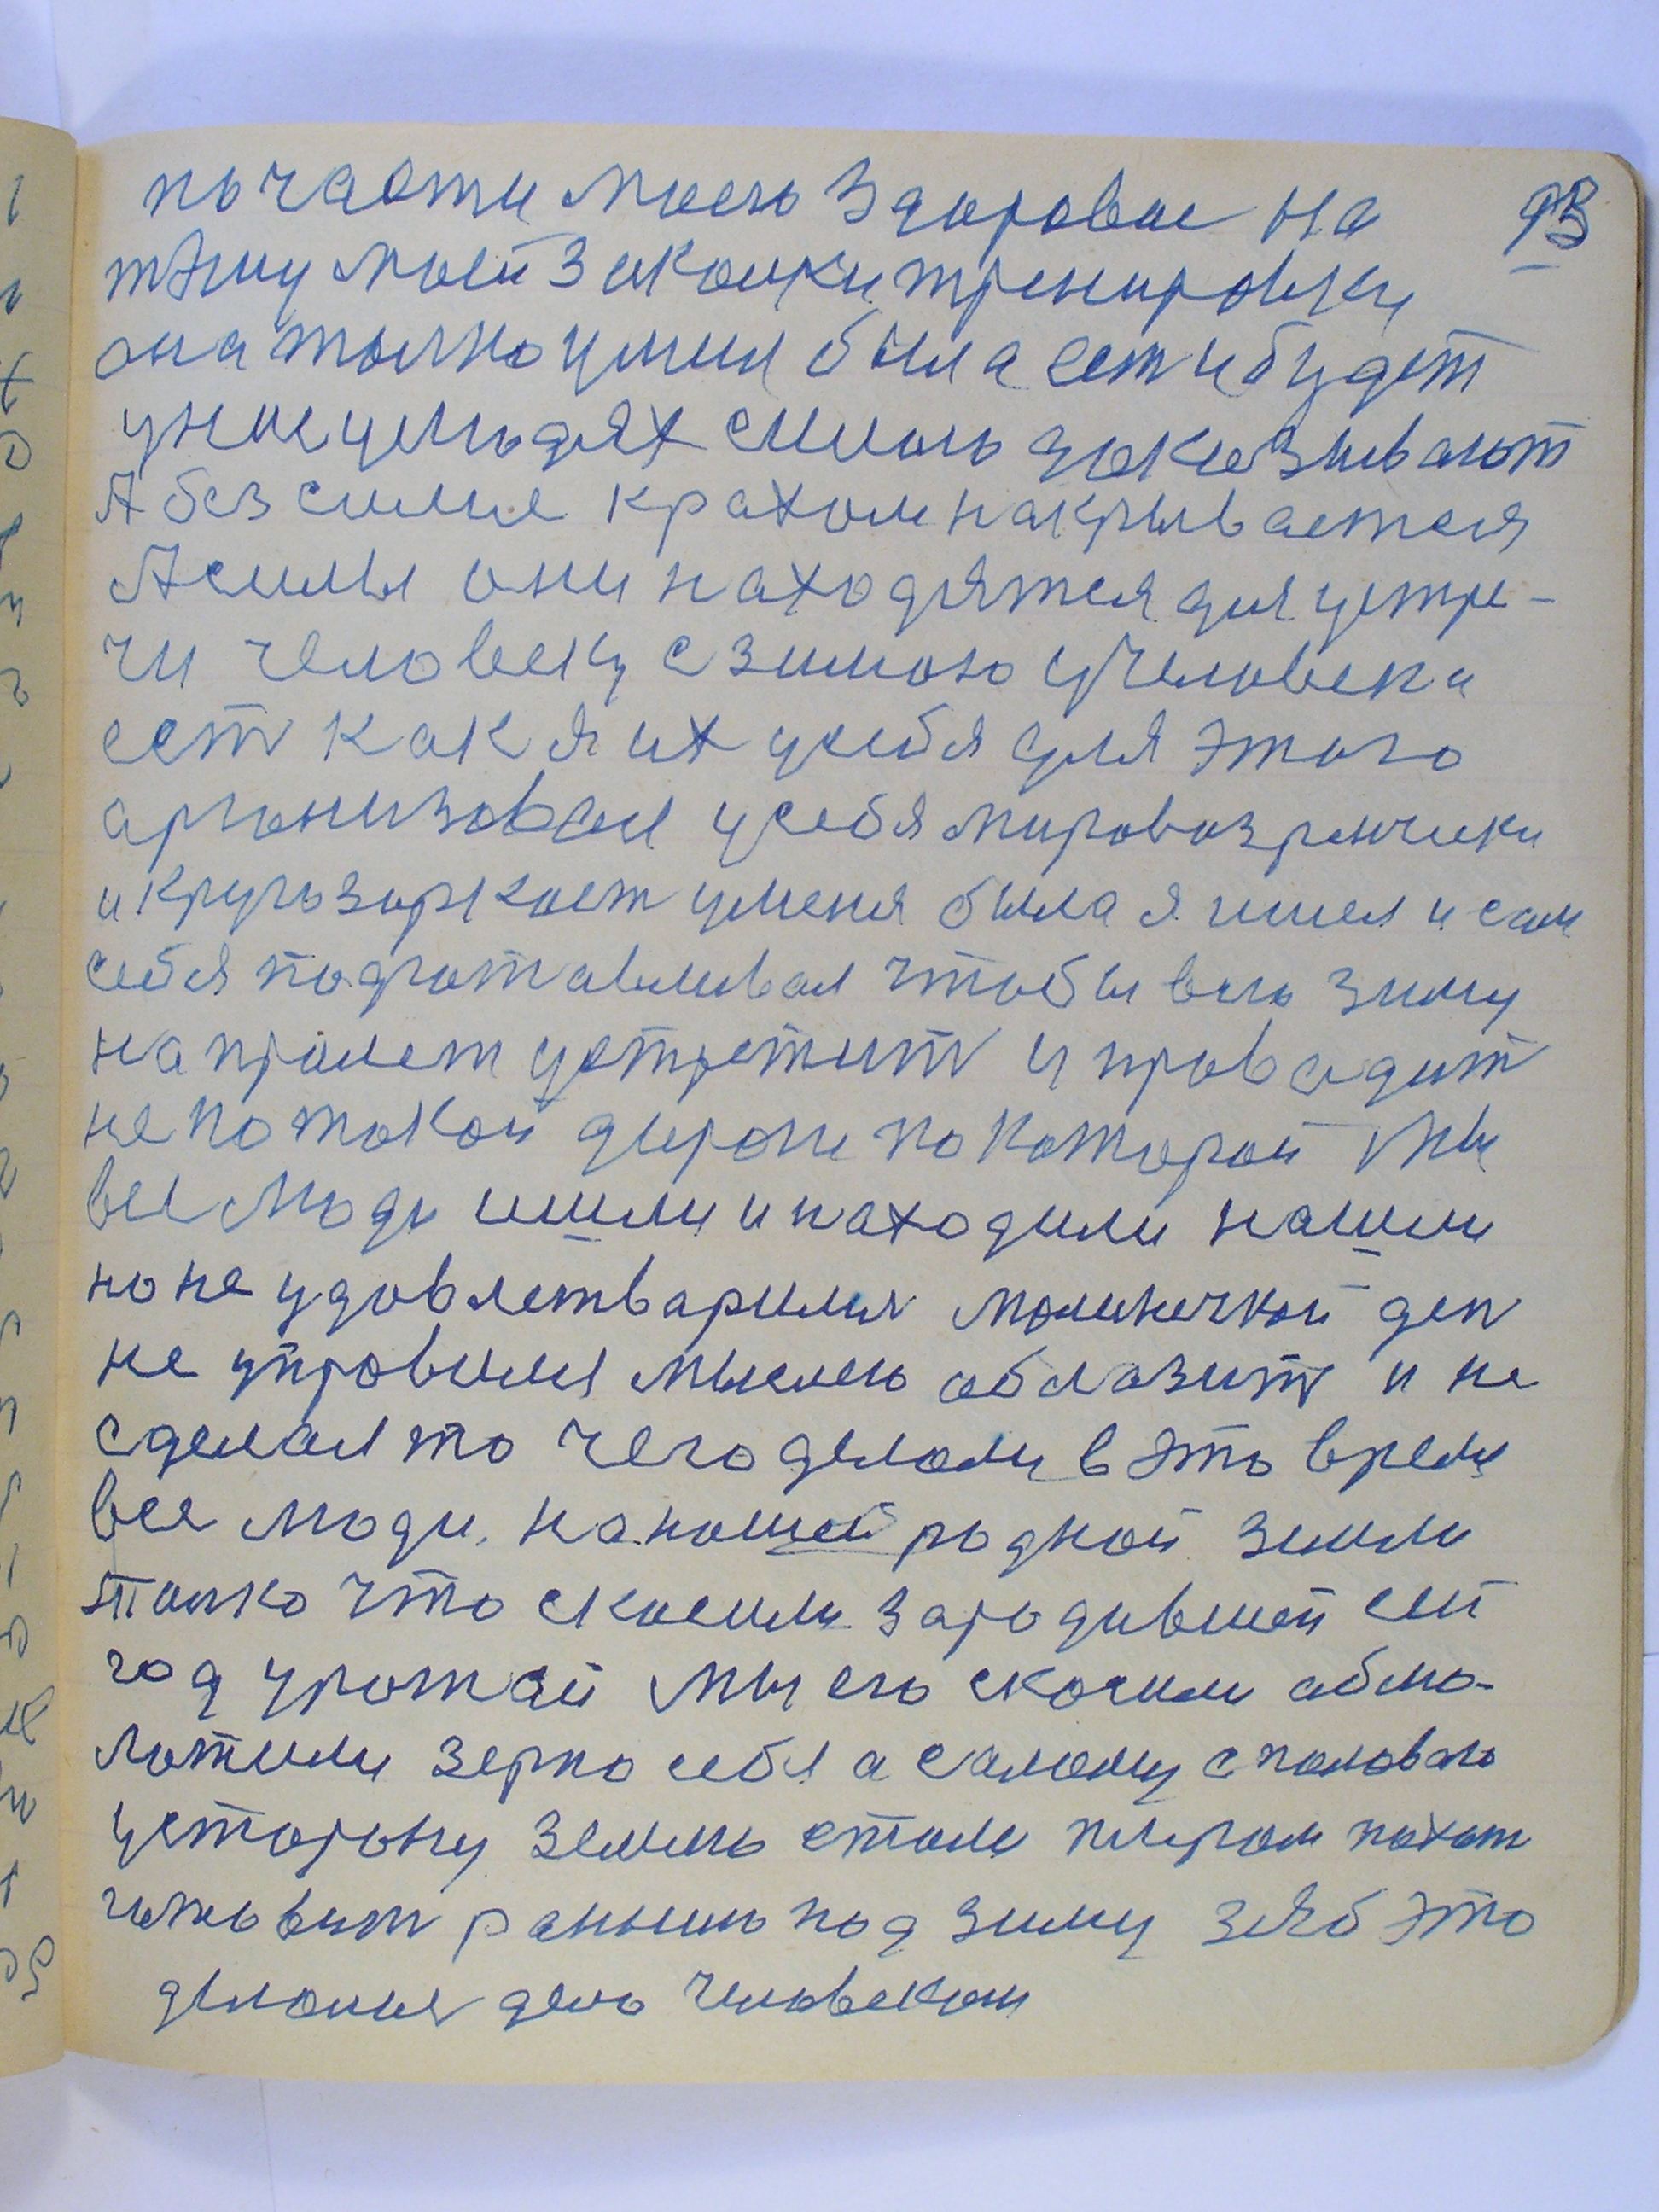 по части моего здоровье на 93
тэму моей закалки тренировки
она толко умня была ест и будет
у людях силою показывают
А безсилие крахом накрывается
А силы они находятся для устре-
чи человеку с зимою у человека
ест как я их у себя для этого
арганизовал у себя мировозренчески
и кругозоркост уменя была я ишел и сам
себя подготавливал чтобы вею зиму
напролет устретит и провадит
не по такой дароги по которой мы
все люди ишли и находили нашли
но не удовлетварилис малинечкой ден
не управился мыслею аблазит и не
сделал то чего делали в это время
все люди, на нашей родной земли
толко что скосили зародившей сей
год урожай мы его скосили абмо-
лотили зерно себя а салому с половою
устoрону землю стали плугом пахат
готовит раньшо под зиму зяб это
делание дело человеком